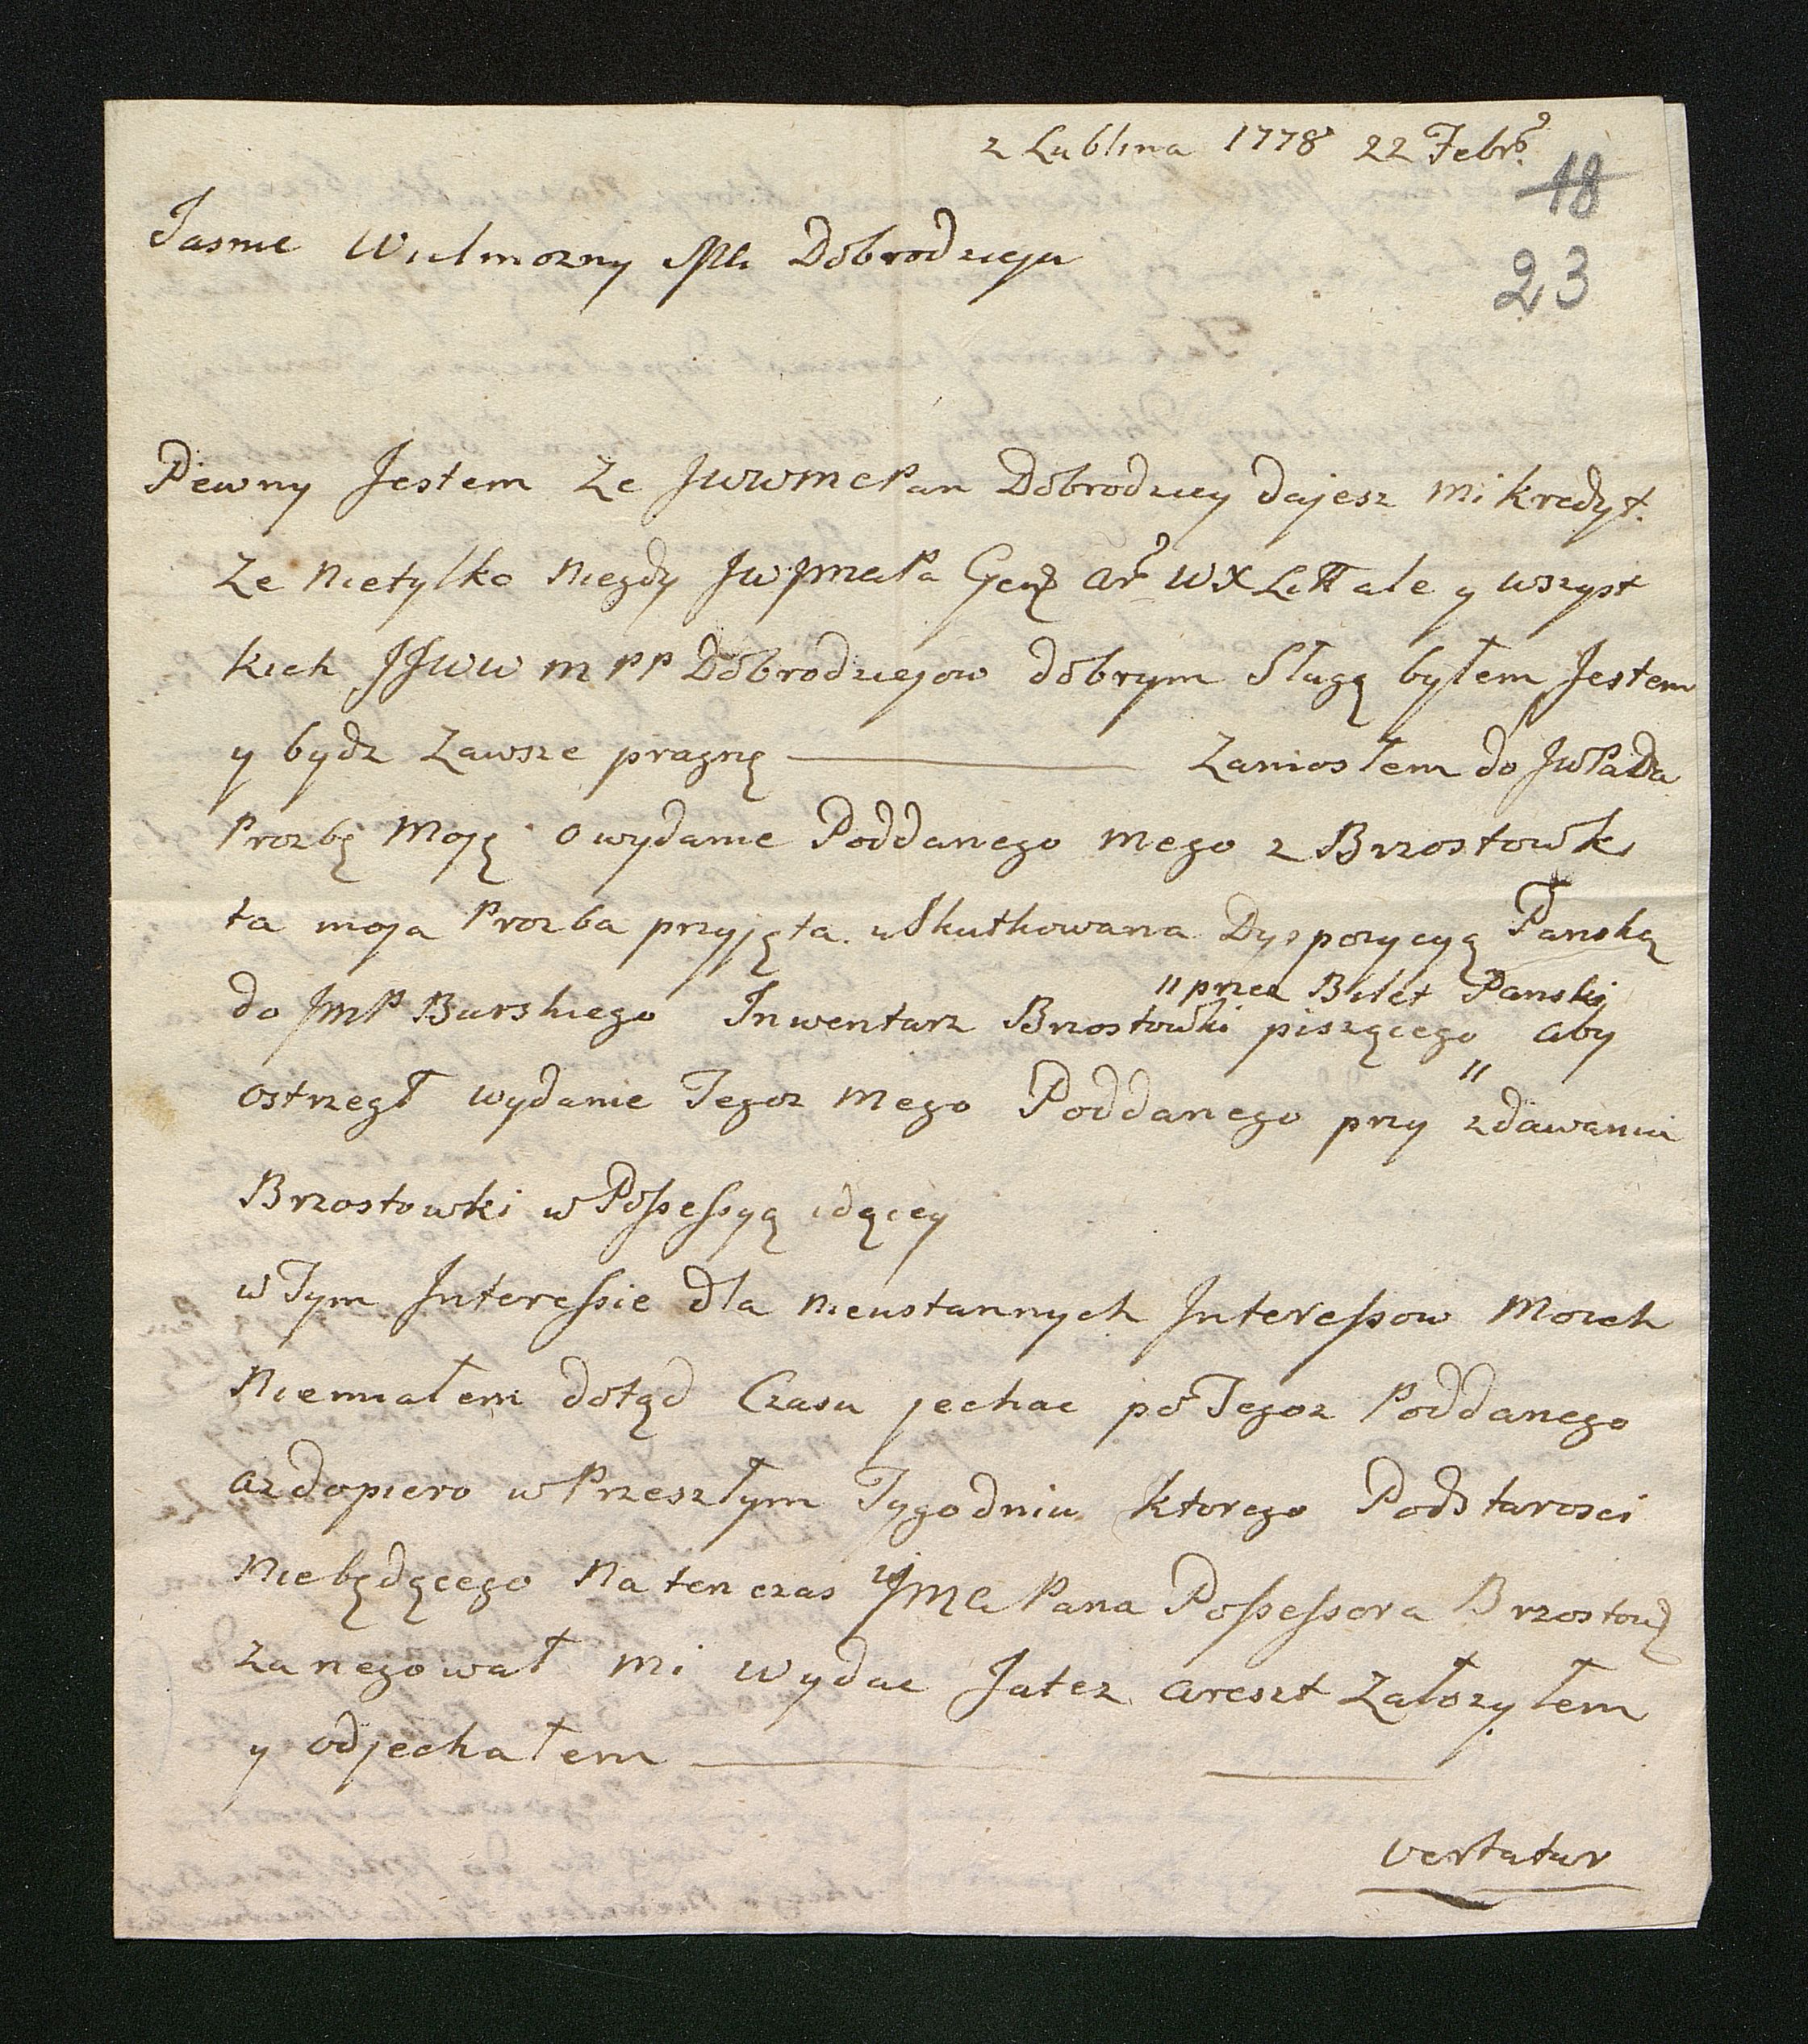 z Lublina 1778 22 Febr.
18
23
Jasnie Wielmozny Mci Dobrodzieju
Pewny Jestem Ze JWWMCPan Dobrodziey dajesz mi kredyt.
Ze nietylko niegdy JWJMCiPa Gen Ar WXLitt ale y wszyst
kich JJWW m PP Dobrodziejow dobrym Sługą byłem Jestem
y bydz Zawsze pragnę ——— Zaniosłem do JWPaDa
Prozbę Moję o wydanie Poddanego mego z Brzostowki
ta moja Prozba przyjęta uskutkowana Dyspozycyą Pańską
"przez Bilet Panski
do JmP Burskiego Inwentarz Brzostowki piszącego " aby
ostrzegł wydanie Tegoz mego Poddanego przy zdawaniu
Brzostowki w Possessyą idącey
w Tym Interessie dla nieustannych Interessow Moich
Niemiałem dotąd Czasu jechac po Tegoz Poddanego
az dopiero w Przeszłym Tygodniu ktorego Podstarosci
Niebędącego Na ten czas JMCi Pana Possessora Brzostow
zanegował mi wydac Ja tez areszt Założyłem
y odjechałem ———
vertatur